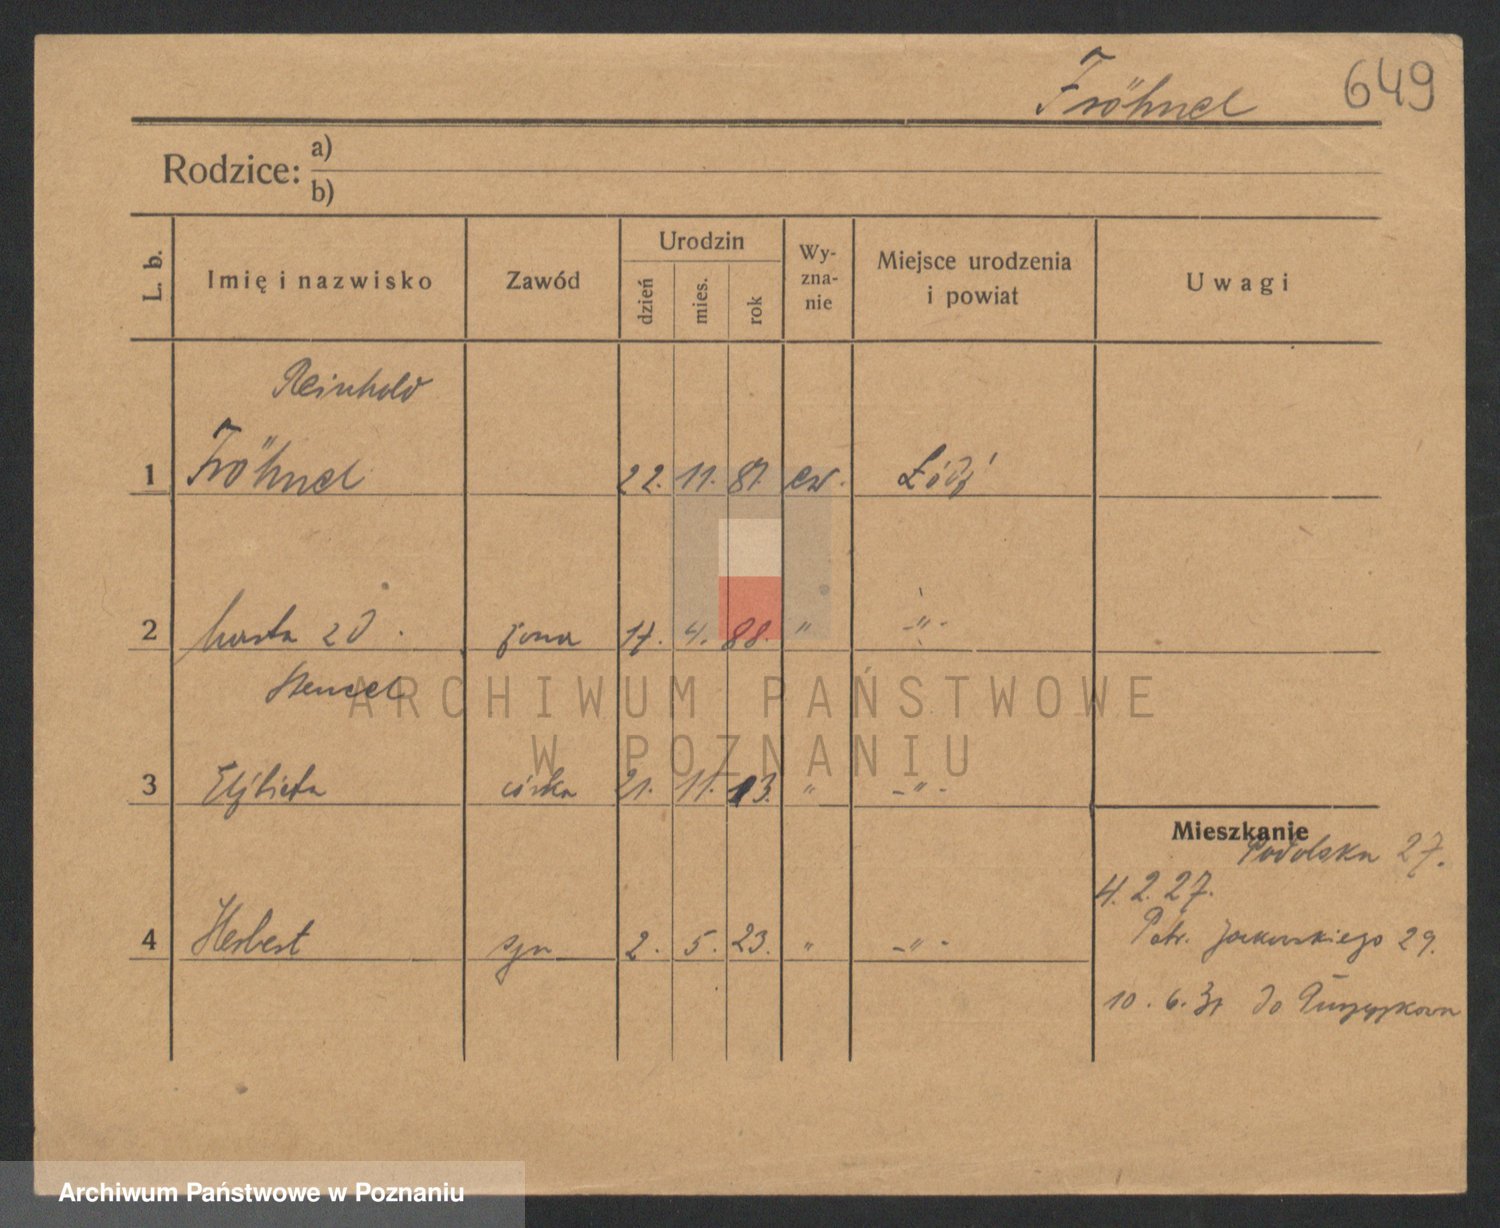 Fröhnel
649
Rodzice: a)
b)
L. b.
Imię i nazwisko
Zawód
Urodzin
dzień
mies.
rok
Wy-
zna-
nie
Miejsce urodzenia
i powiat
Uwagi
Reinhold
1 Fröhnel 22. 11. 87. ew. Łódź
2 Marta zd. żona 17. 4. 88. " -"-
Hensel
3 Elżbieta córka 21. 11. 13. " -"-
Mieszkanie
Podolska 27.
4. 2. 27.
Patr. Jackowskiego 29.
4 Herbert syn 2. 5. 23. " -"-
10. 6. 31 do
ARCHIWUM PAŃSTWOWE
W POZNANIU
Archiwum Państwowe w Poznaniu